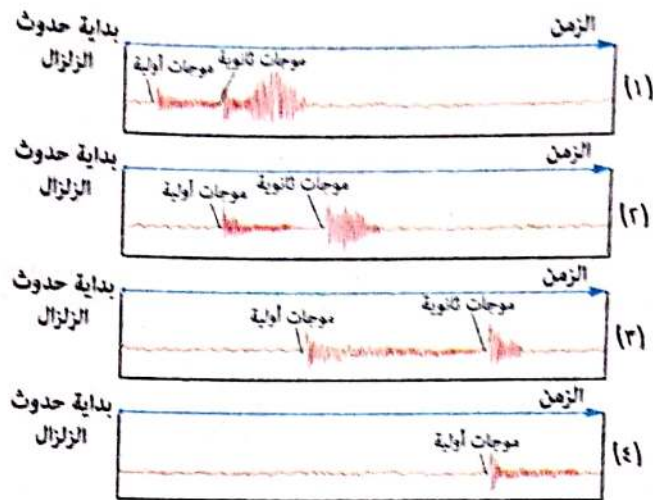 بداية حدوث الزلزال
الزمن
موجات أولية
موجات ثانوية
(١)
بداية حدوث الزلزال
الزمن
موجات أولية
موجات ثانوية
(٢)
بداية حدوث الزلزال
الزمن
موجات أولية
موجات ثانوية
(٣)
بداية حدوث الزلزال
الزمن
موجات أولية
(٤)